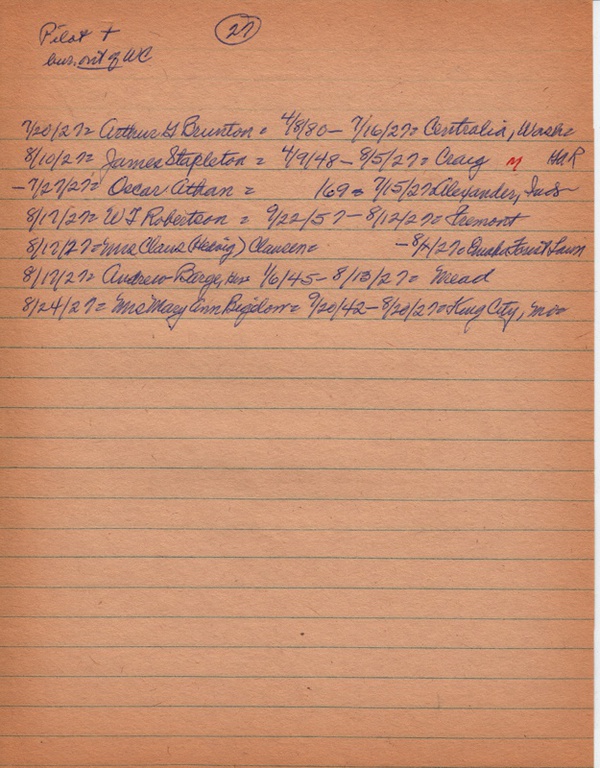 Pilot + 27
bur. out of WC
7/20/27= Arthur G Brunton = 4/8/80 – 7/16/27= Centralia, Wash
8/10/27= James Stapleton = 4/9/48 – 8/5/27= Craig M HAR
– 7/27/27= Oscar Athan = 169 = 7/15/27 Alexander, Inds
8/17/27= W J Robertson = 9/22/57 – 8/12/27= Fremont
8/17/27= Mrs Claus (Hedwig) Clausen= – 8/ /27= Omaha Forest Lawn
8/17/27= Andrew Borge, 1/6/45 – 8/13/27= Mead
8/24/27= Mrs Mary Ann Bigelow = 9/20/42 – 8/20/27= King City, Moo